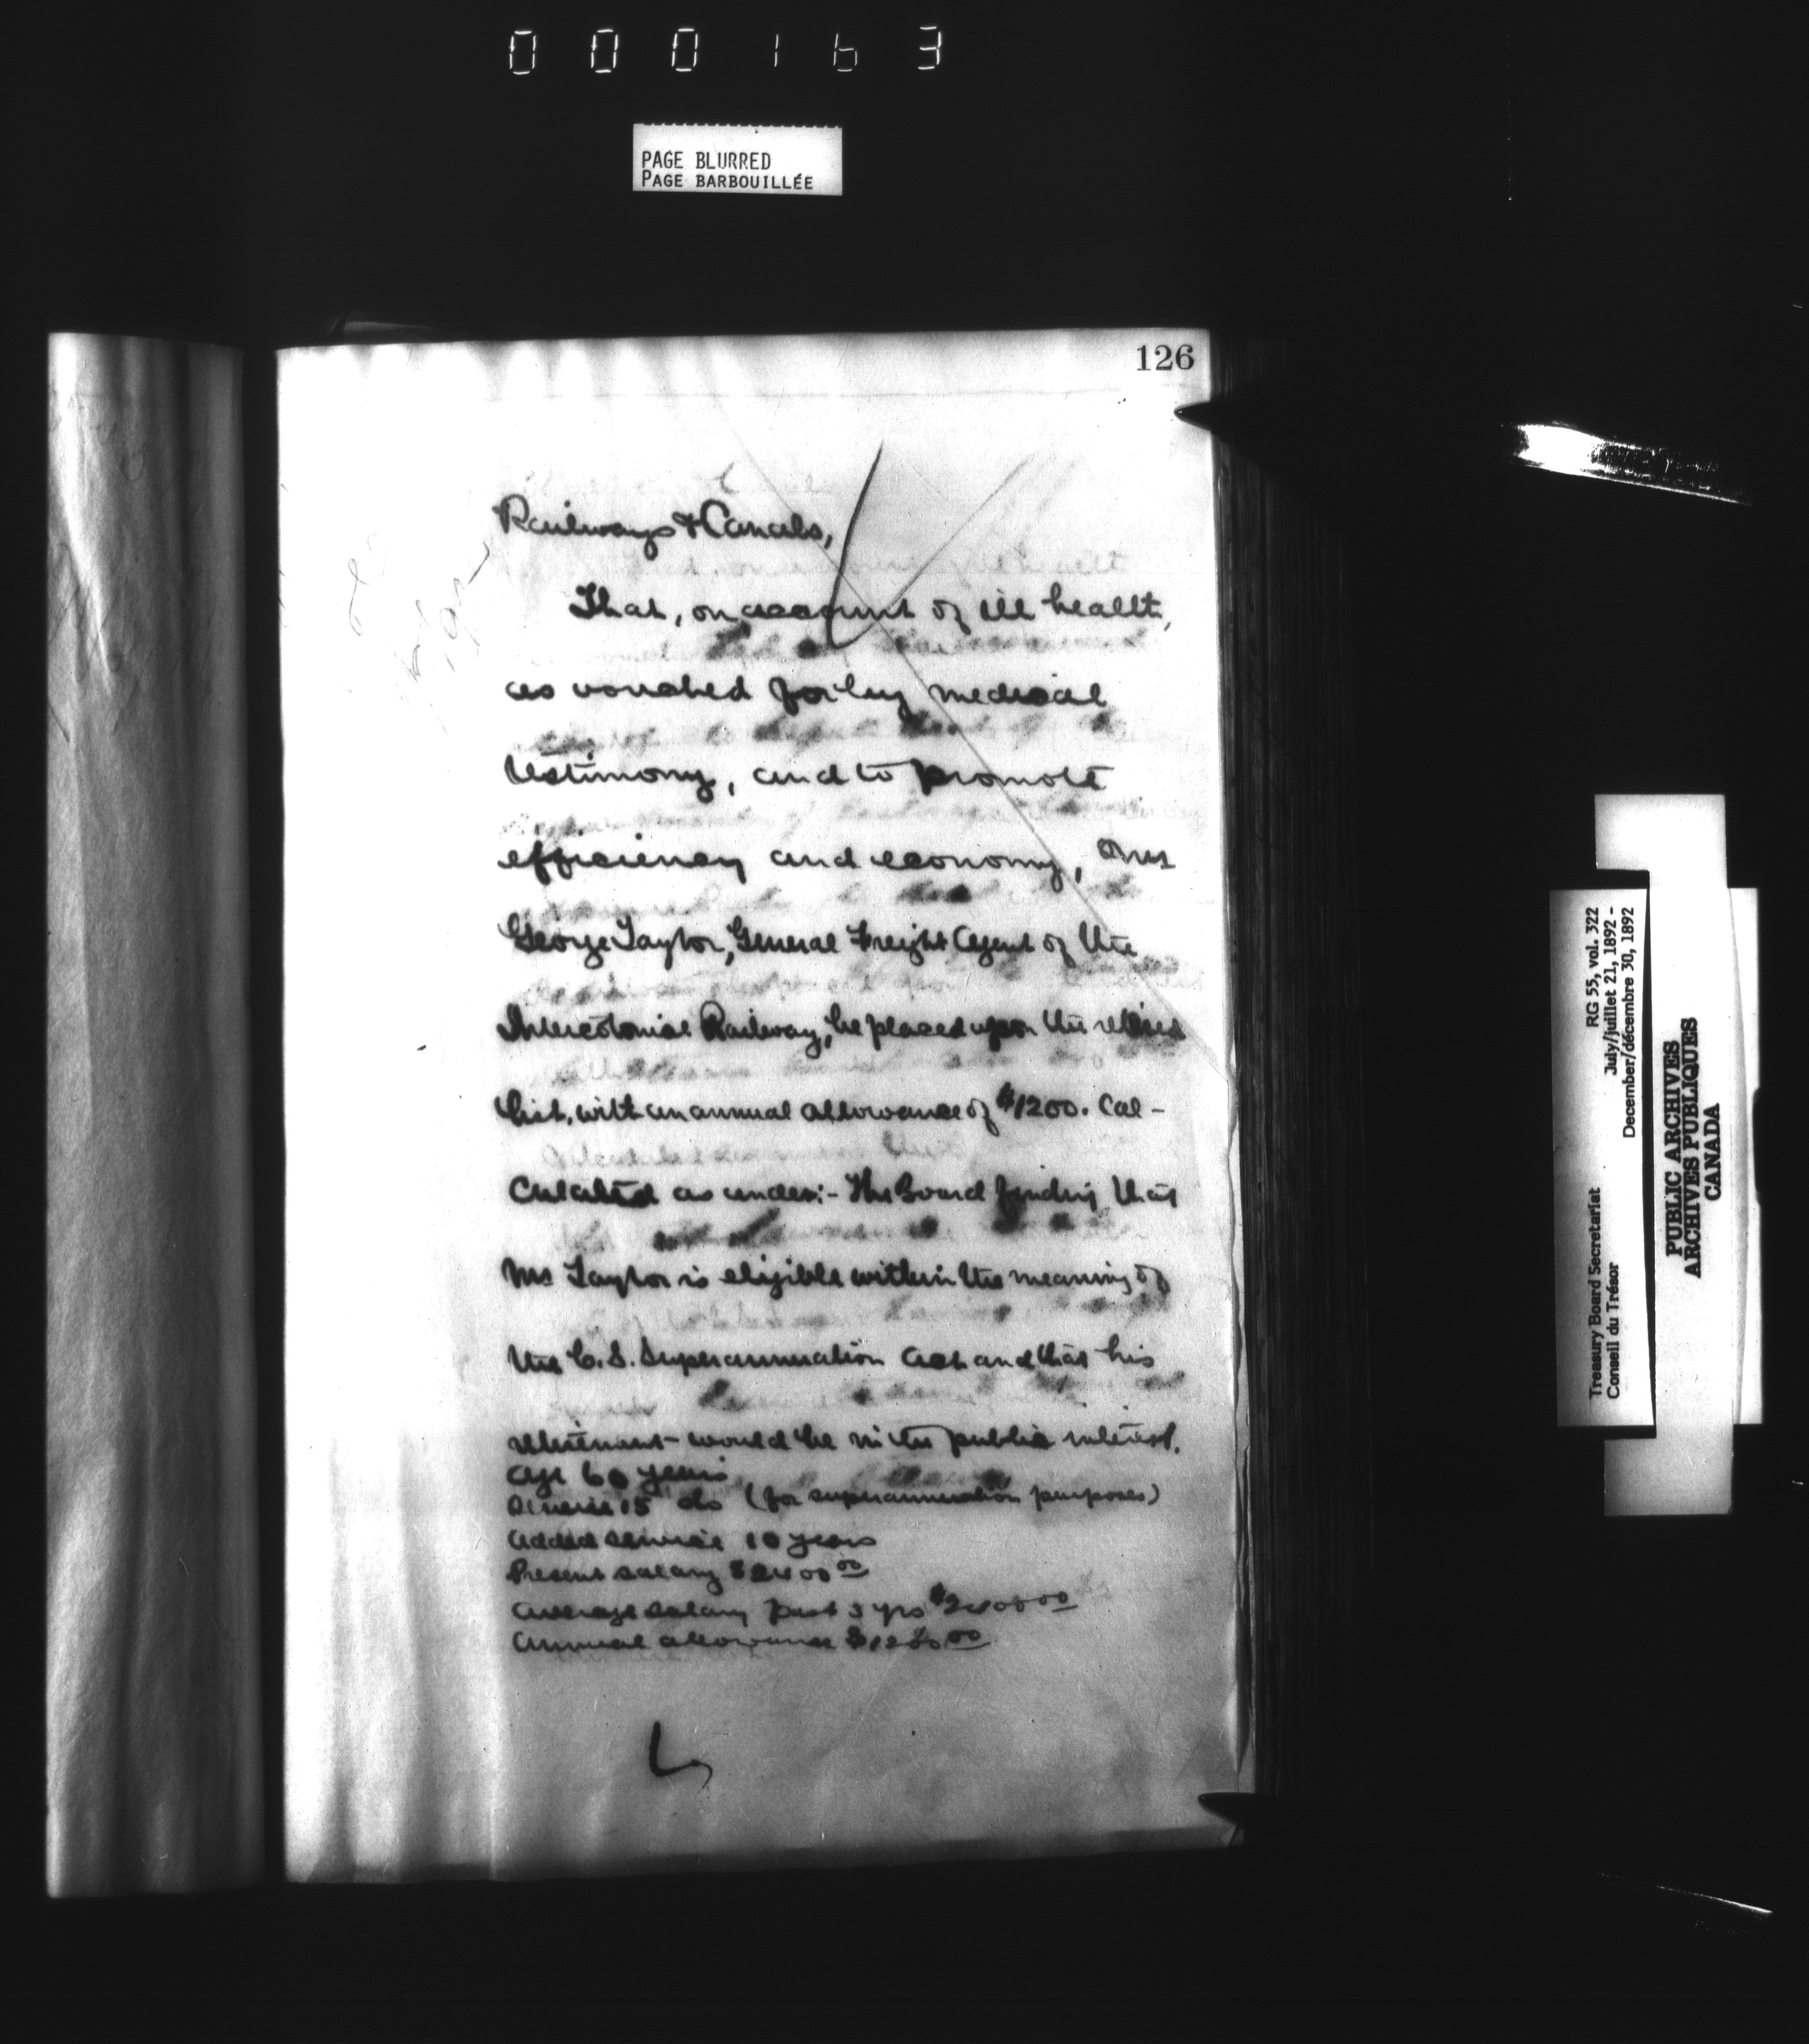 000163
PAGE BLURRED
PAGE BARBOUILLÉE
126
Railways & Canals,
That, on account of ill health,
as vouched for by medical
testimony, and to promote
efficiency and economy, Mr
George Taylor, General Freight Agent of the
Intercolonial Railway, be placed upon the retired
list, with an annual allowance of $1200. Cal-
culated as under:- The Board finding that
Mr Taylor is eligible within the meaning of
the C. S. Superannuation Act and that his
retirement would be in the public interest.
Age 60 years
Service 15 do (for superannuation purposes)
Added service 10 years
Present salary $2400 00
Average salary past 3 yrs $2400 00
Annual allowance $1200 00
Treasury Board Secretariat RG 55, vol. 322
Conseil du Trésor July/juillet 21, 1892 -
December/décembre 30, 1892
PUBLIC ARCHIVES
ARCHIVES PUBLIQUES
CANADA